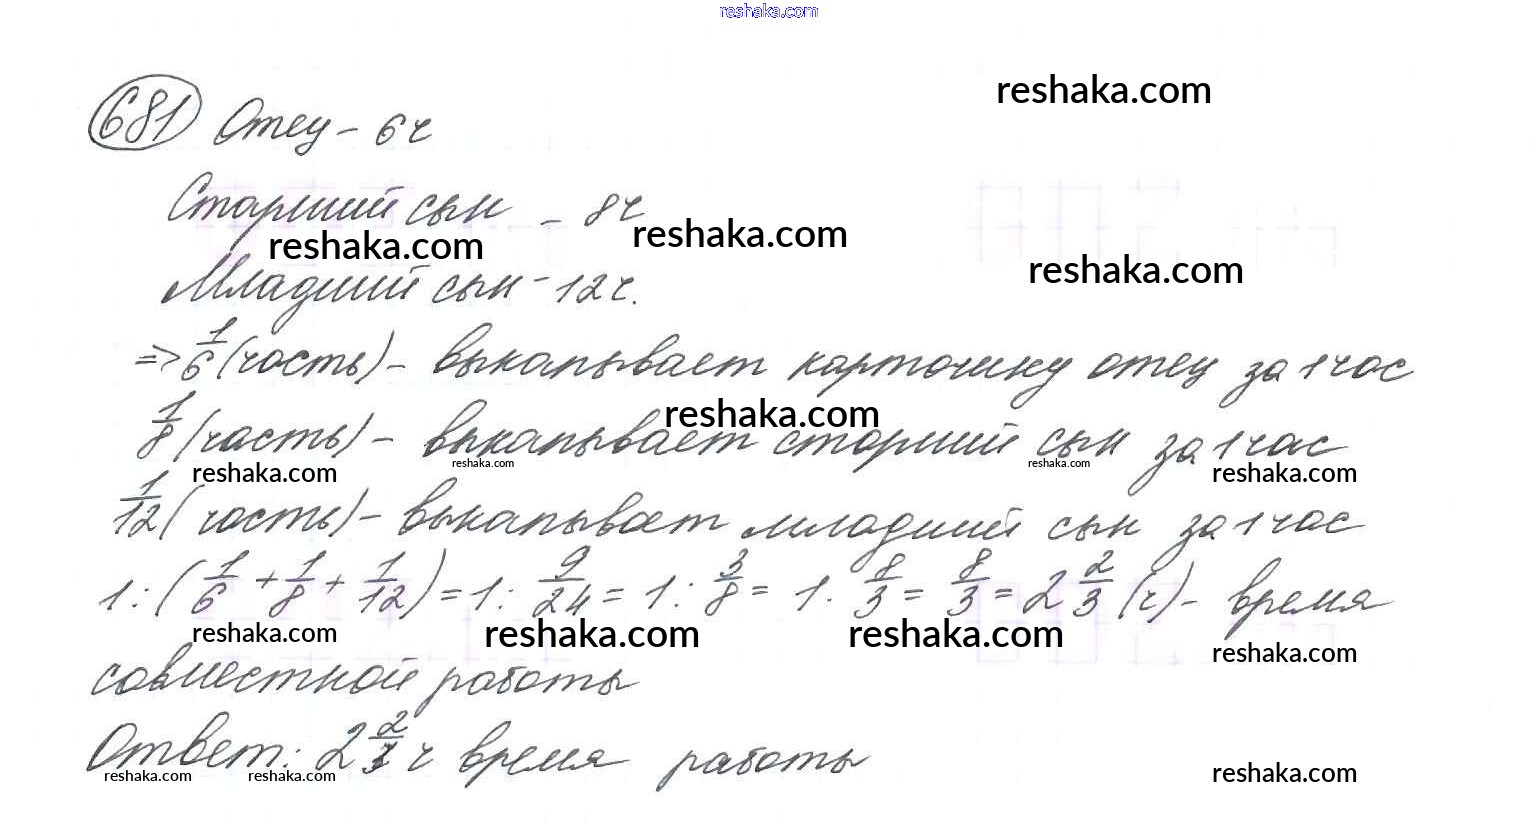 reshaka.com
reshaka.com
681 Отец - 6 ч
Старший сын - 8 ч
reshaka.com reshaka.com
reshaka.com
Младший сын - 12 ч.
=> 1/6 (часть) - выкапывает карточику отец за 1 час
reshaka.com
1/8 (часть) - выкапывает старший сын за 1 час
reshaka.com reshaka.com reshaka.com reshaka.com
1/12 (часть) - выкапывает младший сын за 1 час
1 : (1/6 + 1/8 + 1/12) = 1 : 9/24 = 1 : 3/8 = 1 · 8/3 = 8/3 = 2 2/3 (ч) - время
reshaka.com reshaka.com reshaka.com reshaka.com
совместной работы
Ответ: 2 2/3 ч время работы
reshaka.com reshaka.com reshaka.com